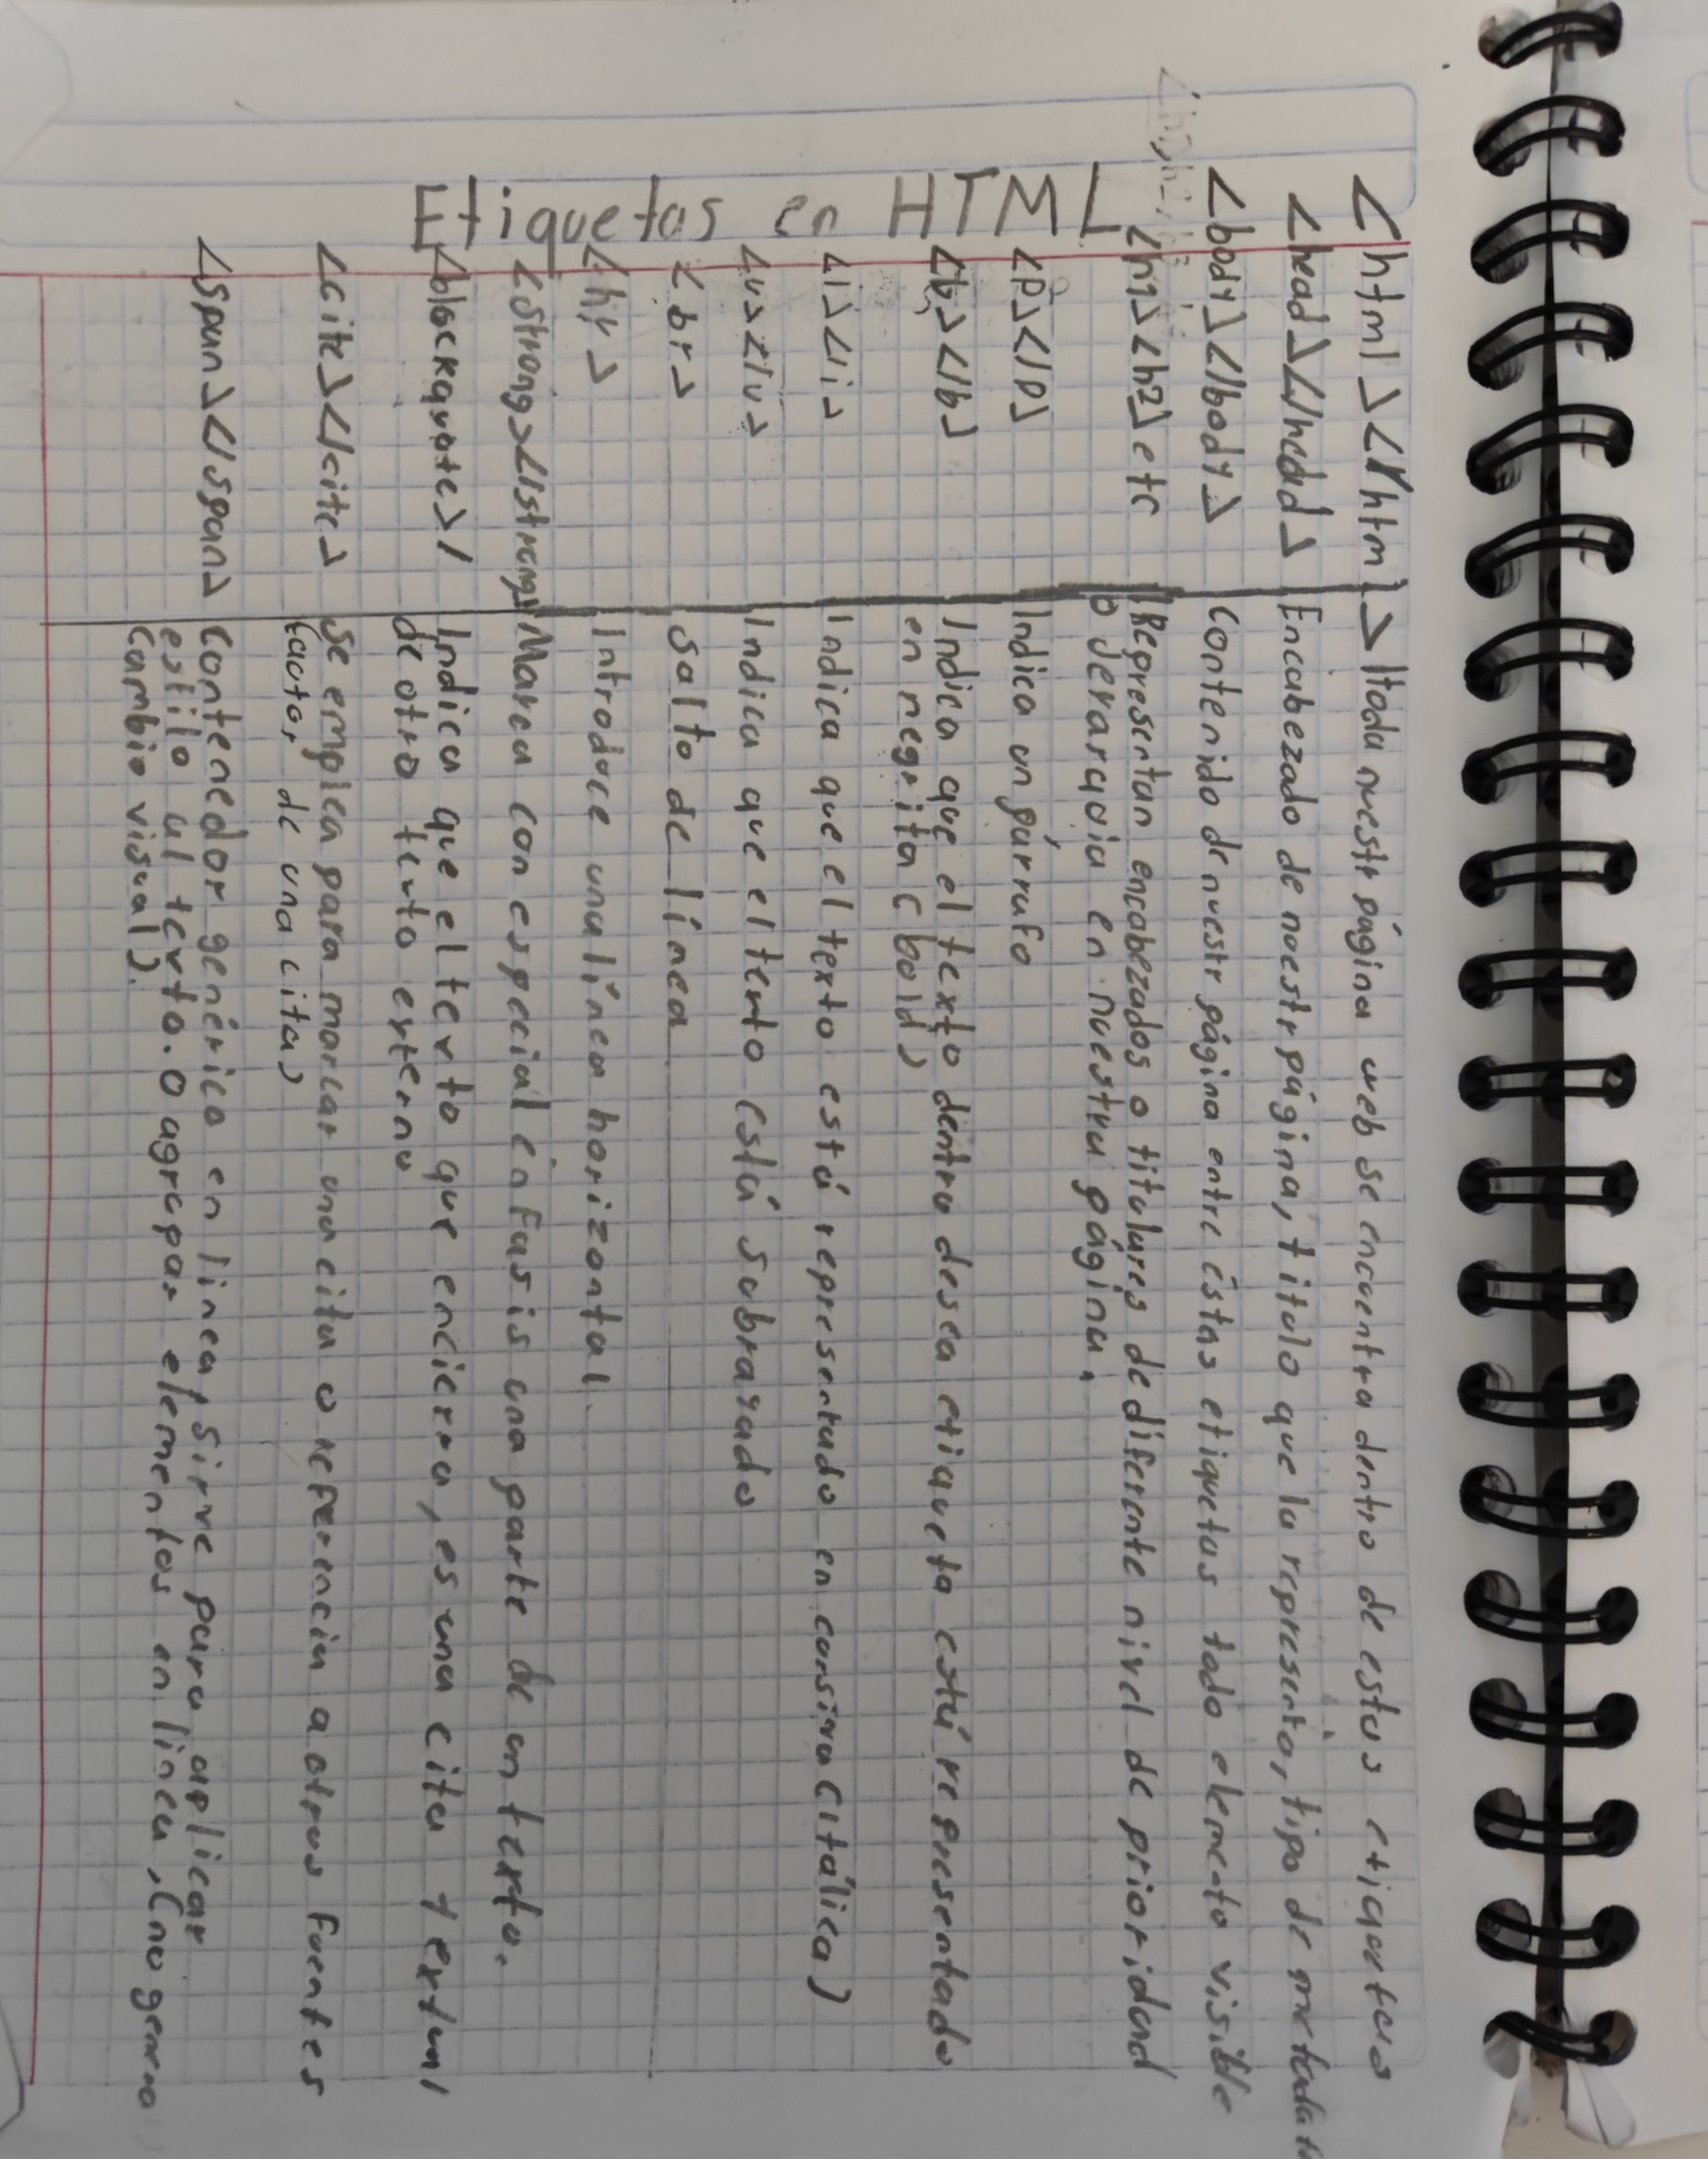 Etiquetas en HTML
<html></html> |toda nuestr página web se encuentra dentro de estas etiquetas
<head></head> Encabezado de nuestr página, titulo que la represента, tipo de metadato
<body></body> contenido de nuestr página entre éstas etiquetas todo elemento visible
<h1><h2> etc Representan encabezados o titulares de diferente nivel de prioridad
o jerarquia en nuestra página.
<p></p> Indica un párrafo
<b></b> Indica que el texto dentro desea etiqueta está representado
en negrita (bold)
<i></i> Indica que el texto está representado en cursiva (itálica)
<u></u> Indica que el texto está subrayado
<br> salto de línea
<hr> Introduce una línea horizontal.
<strong></strong> Marca con especial énfasis una parte de un texto.
<blockquote>/ Indica que el texto que encierra, es una cita textual
de otro texto externo
<cite></cite> se emplea para marcar una cita o referencia a otras fuentes
(autor de una cita)
<span></span> contenedor genérico en linea, sirve para aplicar
estilo al texto. O agrupar elementos en linea, (no genera
cambio visual).